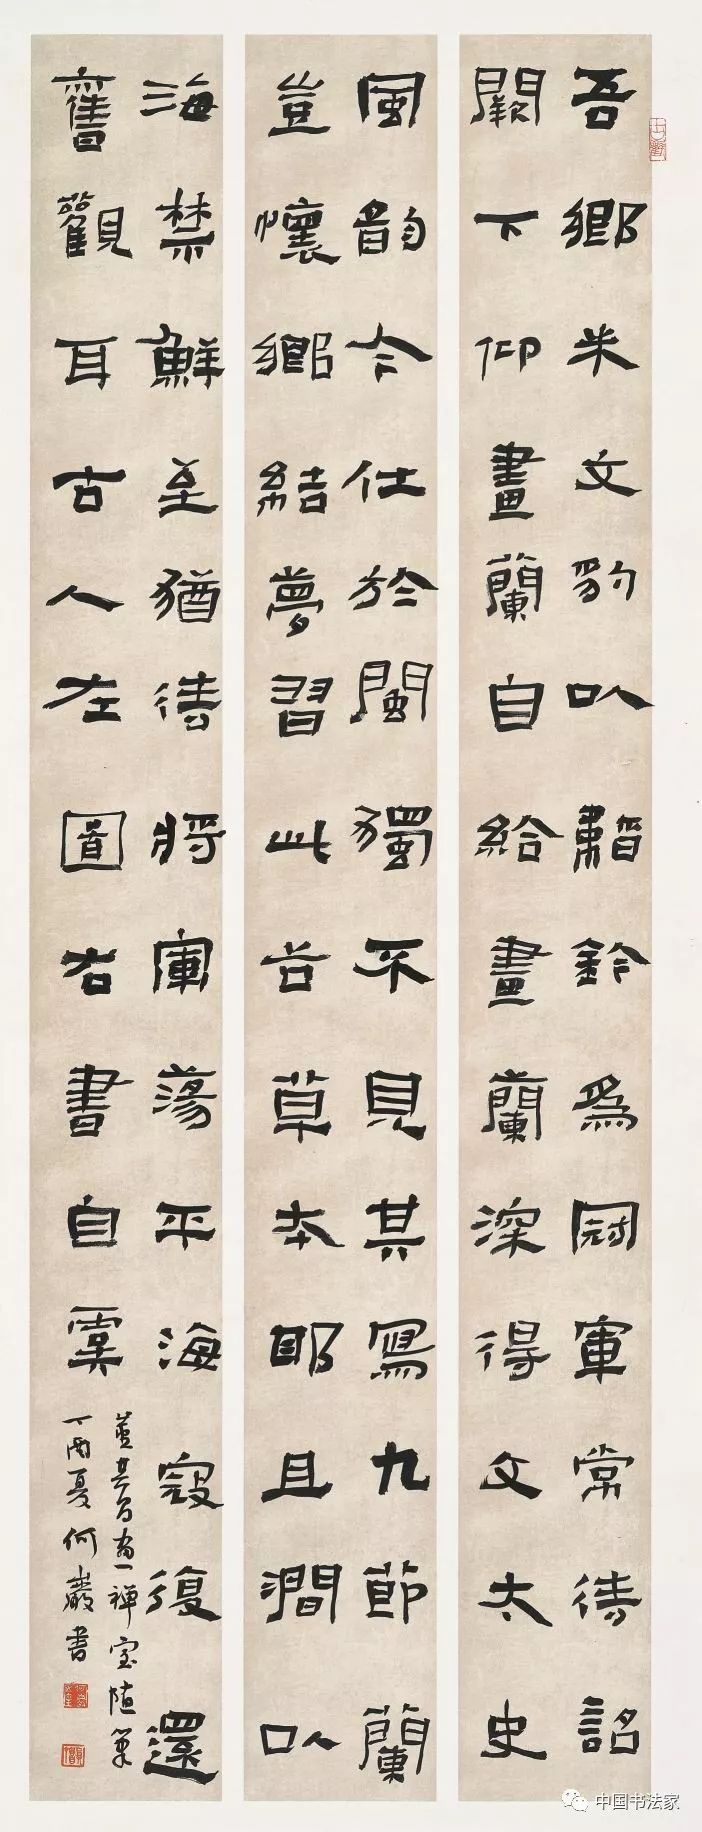 吾鄉米文豹以韜鈐爲冠軍常待詔
闕下仰畫蘭自給畫蘭深得文太史
風韵今仕於閩獨不見其寫九節蘭
豈懷鄉結夢習此谷草本耶且澗以
海禁鮮至猶待將軍蕩平海寇復還
舊觀耳古人左圖右書自虞
董其昌畫禪室隨筆
丁酉夏何巖書
中国书法家